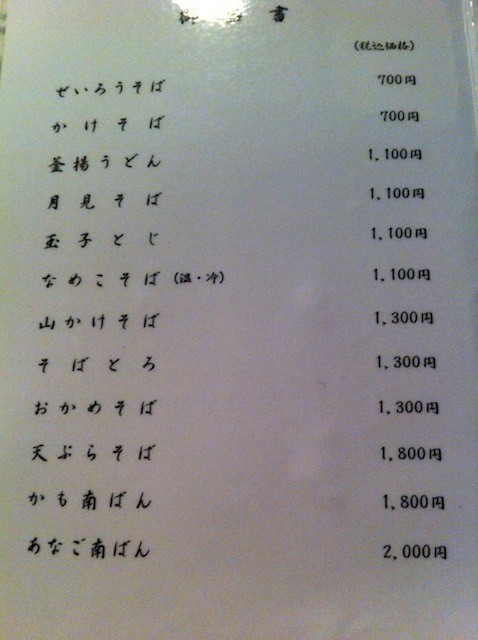 書
(税込価格)
せいろうそば 700円
かけそば 700円
釜揚うどん 1,100円
月見そば 1,100円
玉子とじ 1,100円
なめこそば (温・冷) 1,100円
山かけそば 1,300円
そばとろ 1,300円
おかめそば 1,300円
天ぷらそば 1,800円
かも南ばん 1,800円
あなご南ばん 2,000円